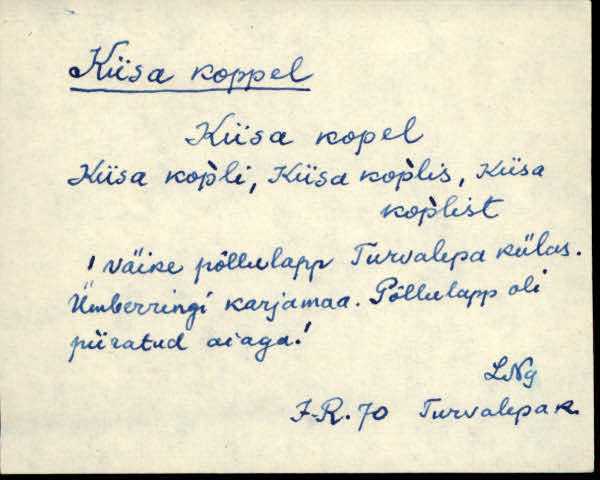 Kiisa koppel
Kiisa kopel
Kiisa kop̀li, Kiisa kop̀lis, Kiisa
kop̀list
! väike põllulapp Turvalepa külas.
Ümberringi karjamaa. Põllulapp oli
piiratud aiaga.!
LNg
J-R. 70 Turvalepa k.